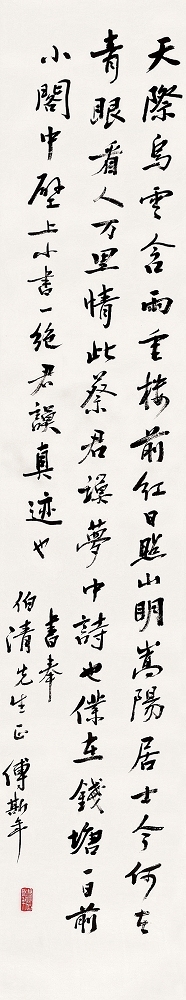 天際烏雲含雨重樓前紅日照山明嵩陽居士今何在
青眼看人万里情此蔡君謨夢中詩也僕在錢塘一日前
小閣中壁上小書一絶君謨真迹也
書奉
伯清先生正
傅斯年